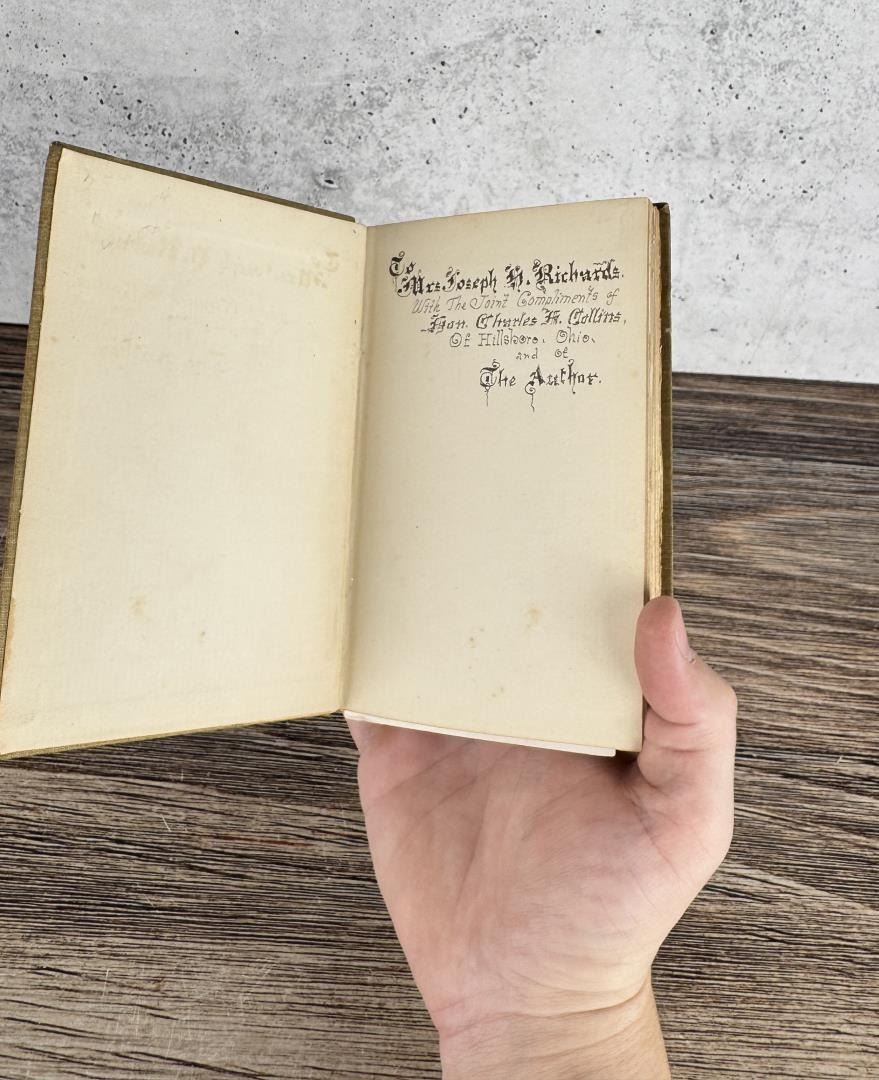 To
Mrs Joseph H. Richards.
With The Joint Compliments of
Hon. Charles H. Collins,
Of Hillsboro, Ohio,
and of
The Author.